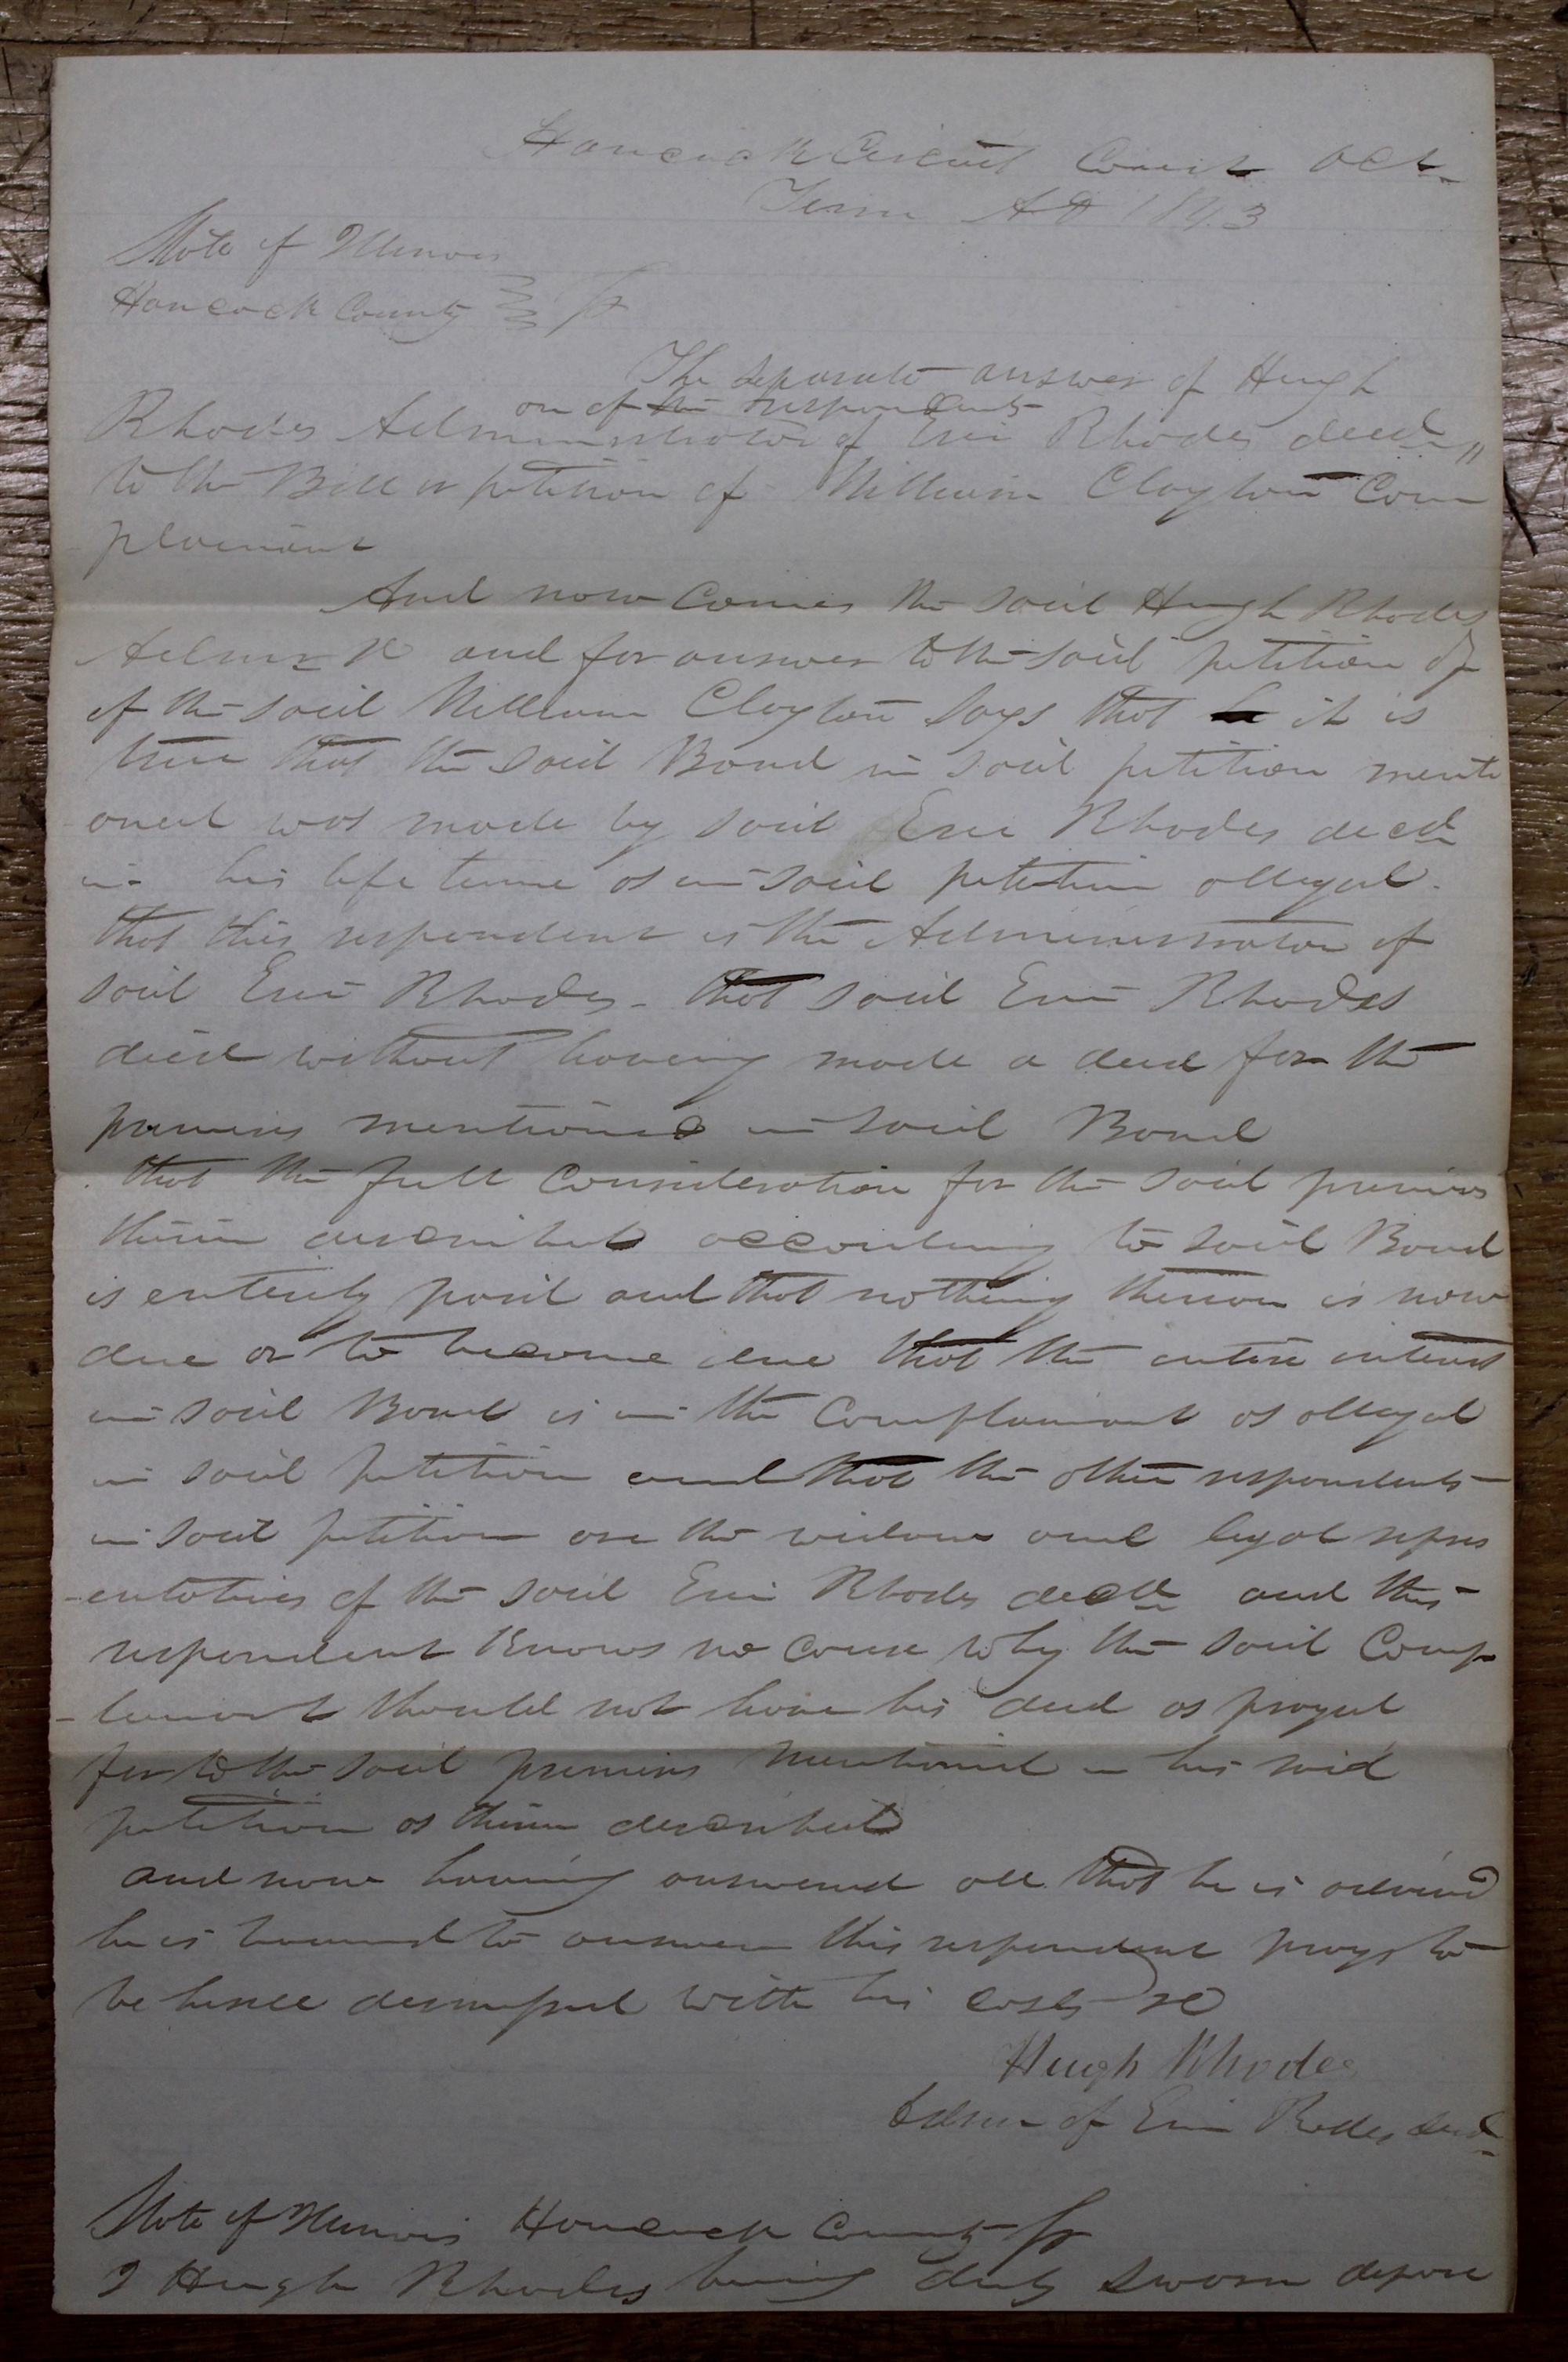 Hancock Circuit Court Oct
Term AD 1843
State of Illinois
Hancock County ss
The separate answer of Hugh
one of the respondents
Rhodes Administrator of Erie Rhodes decd
to the Bill or petition of William Clayton Com
plainant
And now comes the said Hugh Rhodes
Admr &c and for answer to the said petition of
of the said William Clayton says that it is
true that the said Bond in said petition menti
oned was made by said Erie Rhodes decd
in his life time as in said petition alleged.
that this respondent is the Administrator of
said Erie Rhodes - that said Erie Rhodes
died without having made a deed for the
premises mentioned in said Bond
that the full consideration for the said premises
therein described according to said Bond
is entirely paid and that nothing thereon is now
due or to become due that the entire interest
in said Bond is in the Complainant as alleged
in said petition and that the other respondents
in said petition are the widow and legal repres
-entatives of the said Erie Rhodes decd and this
respondent knows no cause why the said Comp
-lainant should not have his deed as prayed
for to the said premises mentioned in his said
petition as therein described
and now having answered all that he is advised
he is bound to answer this respondent prays to
be hence dismissed with his costs &c
Hugh Rhodes
Admr of Erie Rodes decd
State of Illinois Hancock County ss
I Hugh Rhodes being duly sworn depose